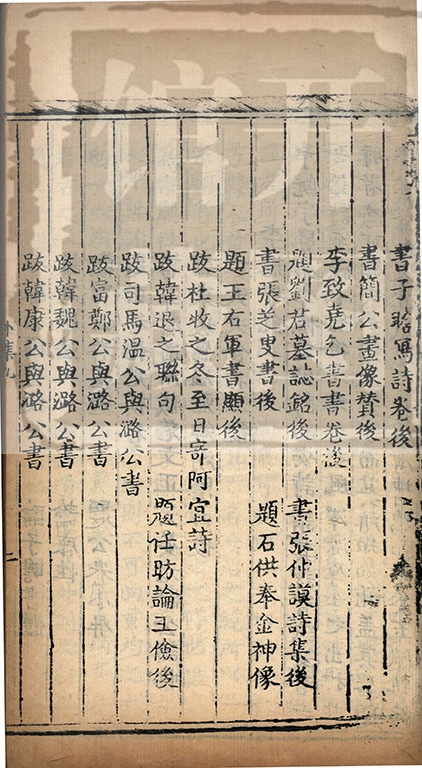 書子瞻寫詩卷後
書簡公畫像贊後
李致堯乞書書卷後
題劉君墓誌銘後 書張仲謨詩集後
書張芝叟書後 題石供奉金神像
題王右軍書顯後
跋杜牧之冬至日寄阿宜詩
跋韓退之聯句 題任昉論王儉後
跋司馬温公與潞公書
跋富鄭公與潞公書
跋韓魏公與潞公書
跋韓康公與潞公書
外集九 二